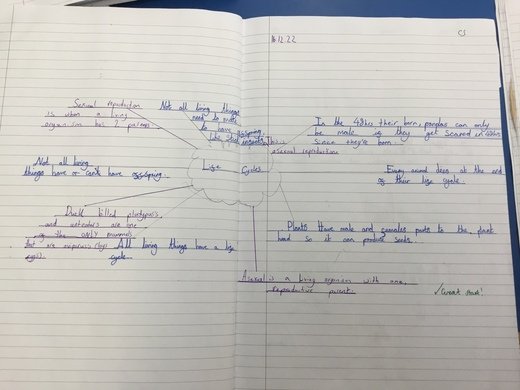 CS
16.12.22
Sexual reproduction
is when a living
organism has 2 parents
Not all living things
need to mate
to have
offspring
like stick insects. This is
asexual reproduction.
In the 48hrs their born, pandas can only
be male is they get scared in 48hrs
since they're born.
Not all living
things have or can't have offspring.
Life Cycles
Every animal dies at the end
of their life cycle.
Duck billed platypus's
and echidna's are one
of the ONLY mammals
that are oviparous (lay
eggs).
All living things have a life
cycle.
Plants have male and females parts to the plant
head so it can produce seeds.
Asexual is a living organism with one
reproductive parent.
✓Great start!